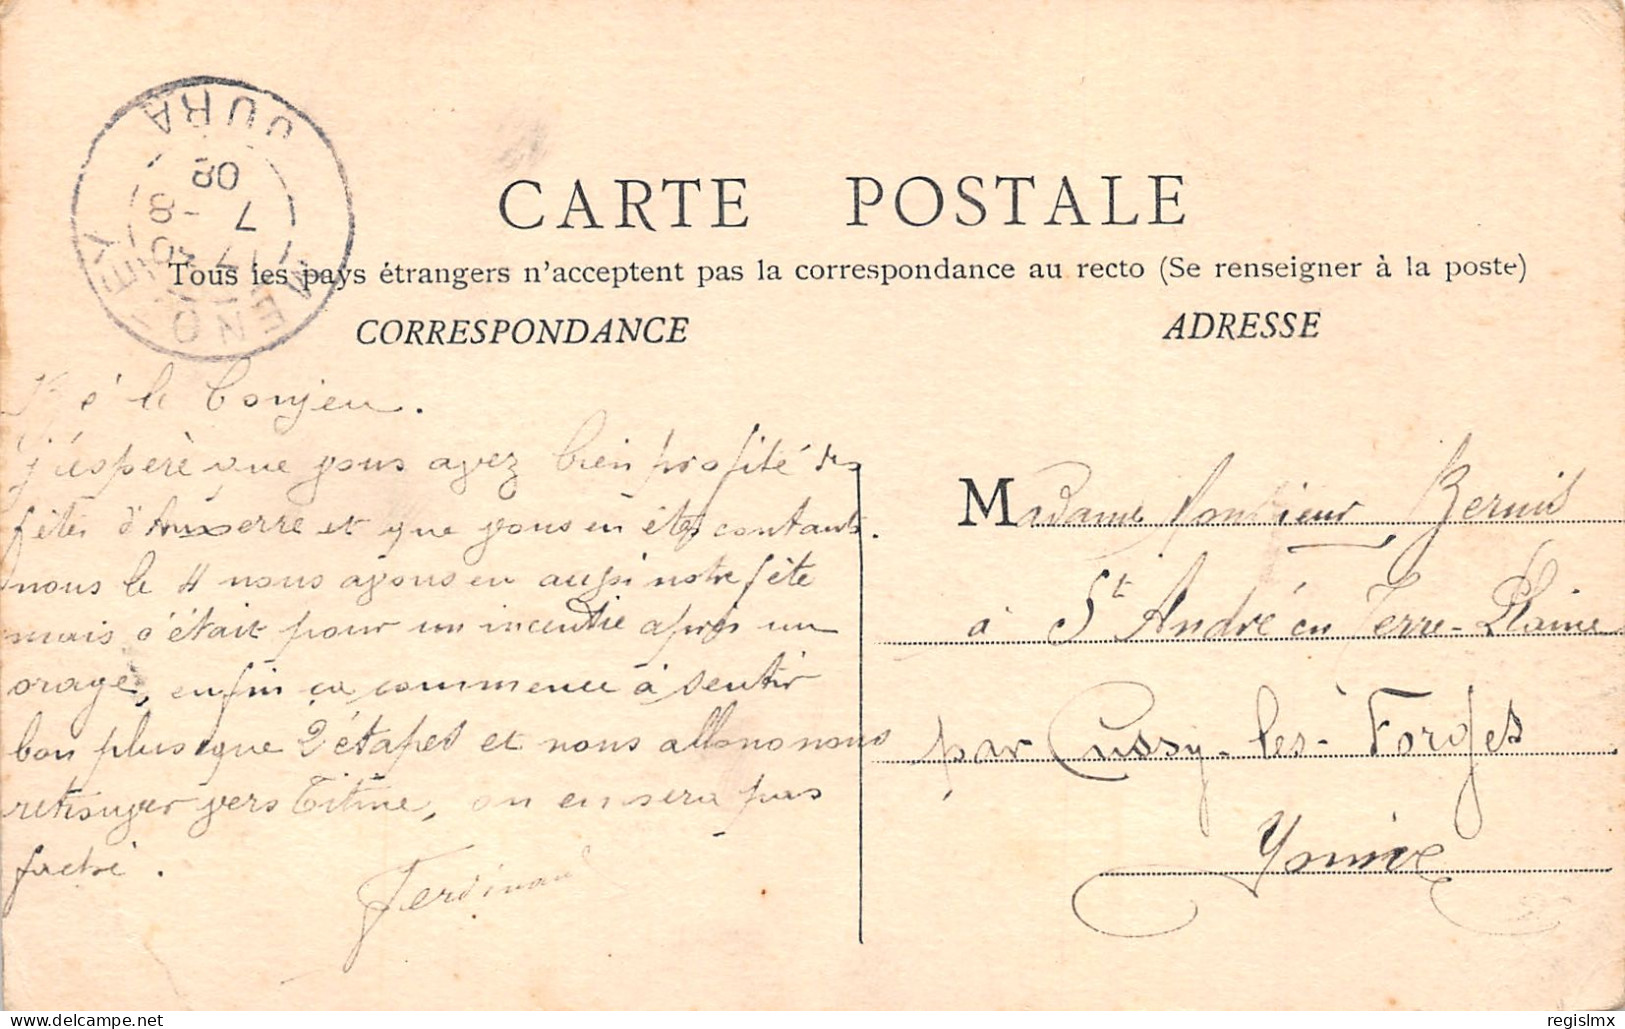 JURA
08
7 - 8
17 40
CARTE POSTALE
Tous les pays étrangers n'acceptent pas la correspondance au recto (Se renseigner à la poste)
CORRESPONDANCE
ADRESSE
le Conjeu.
J'espère que vous avez bien profité des
fêtes d'Auxerre et que vous en êtes contants.
nous le 4 nous avons eu aussi notre fête
mais c'était pour un incendie après un
orage, enfin ça commence à sentir
bon plus que 2 étapes et nous allons nous
retrouver vers Titine, on en sera pas
faché.
Ferdinand
Madame Bernis
à St André en Terre-Plaine
par Cussy-les-Forges
Yonne
regislmx